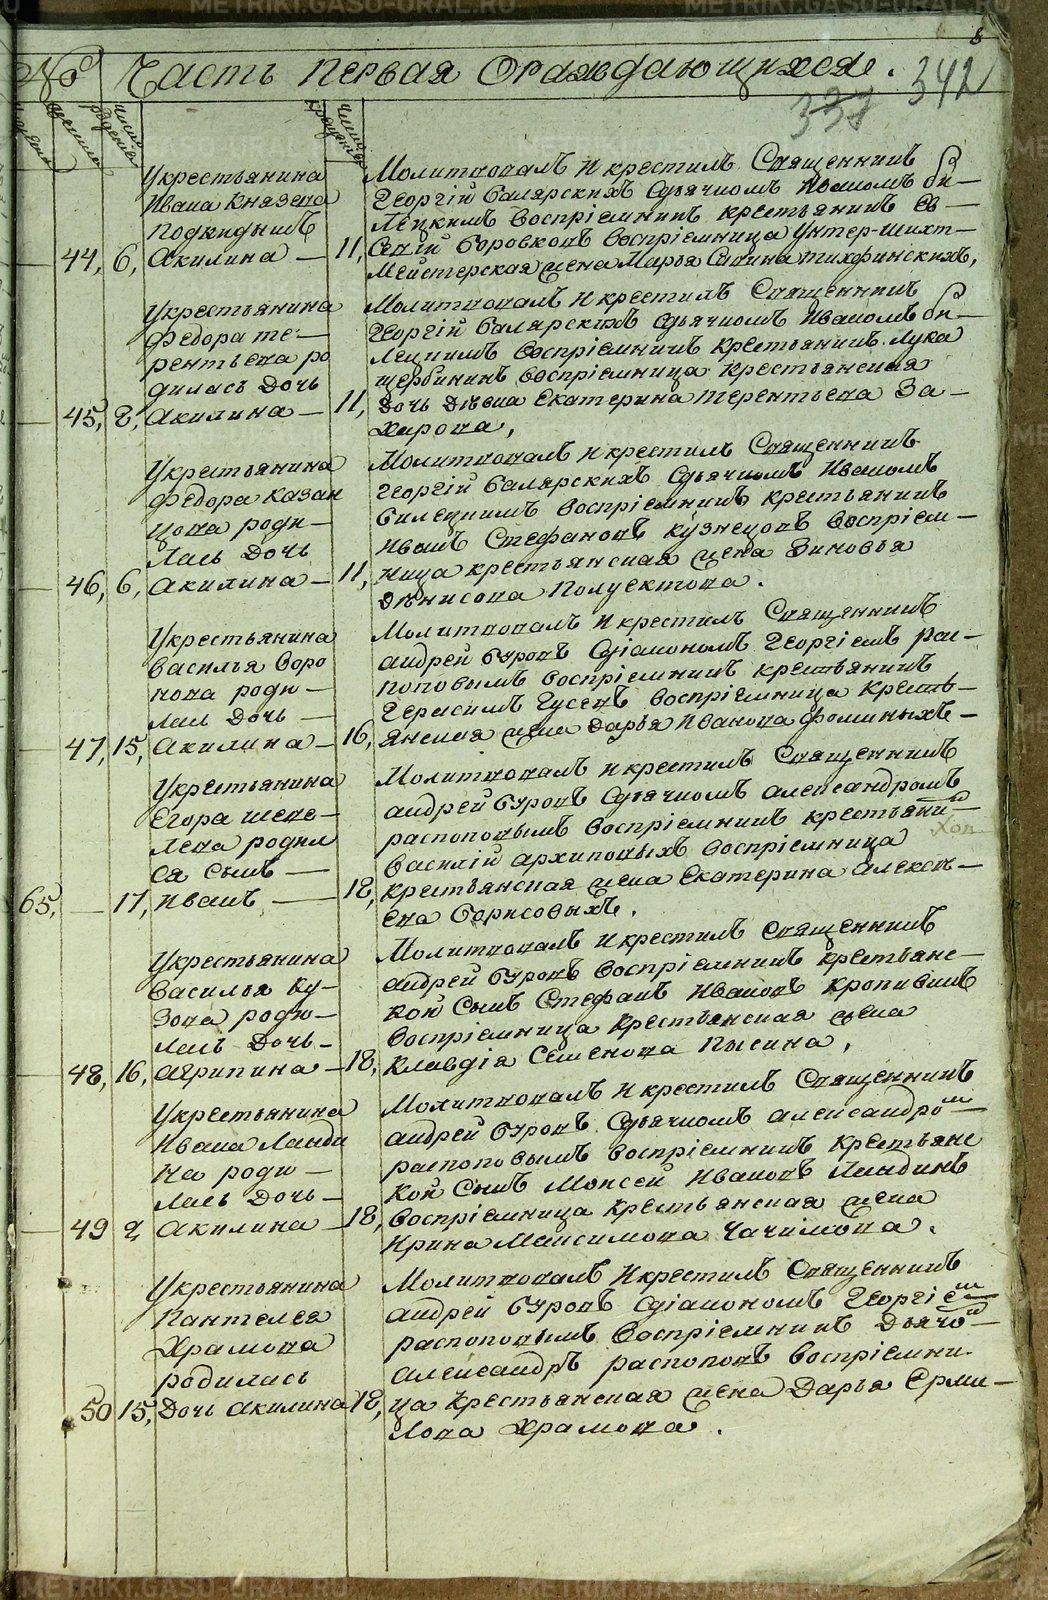 № Часть Первая Ораждающихся. 342
337
Укрестьянина
Ивана Князева
подкидышъ
44, 6, Акилина — 11,
Молитвовалъ и крестилъ Священникъ
Георгій Салярскихъ Сдьячкомъ Иваномъ Би—
лецкимъ Воспріемникъ крестьянинъ Ев—
сегій Боровковъ Воспріемница Унтер-Шихт—
мейстерская жена Марья Савина Тихфинскихъ,
Укрестьянина
Федора Те—
рентьева ро
дилась Дочь
45, 8, Акилина — 11,
Молитвовалъ и крестилъ Священникъ
Георгій Салярскихъ Сдьячкомъ Иваномъ Би—
лецкимъ Воспріемникъ крестьянинъ Лука
щербининъ Воспріемница крестьянская
Дочь Дѣвка Екатерина Терентьева За—
харова,
Укрестьянина
Федора Казан
цова роди—
лась Дочь
46, 6, Акилина — 11,
Молитвовалъ и крестилъ Священникъ
Георгій Салярскихъ Сдьячкомъ Иваномъ
Билецкимъ Воспріемникъ крестьянинъ
Иванъ Стефановъ Кузнецовъ Воспріем—
ница крестьянская жена Зиновья
Дѣнисова Полуектова.
Укрестьянина
Василья Воро
нова роди—
лась Дочь —
47, 15, Акилина — 16,
Молитвовалъ и крестилъ Священникъ
Андрей Буровъ Сдіакономъ Георгіемъ Рас—
поповымъ Воспріемникъ крестьянинъ
Герасимъ Гусевъ Воспріемница Кресть—
янская жена Дарья Иванова Фоминыхъ—
Укрестьянина
Егора Шеве—
лева родил
ся сынъ —
65, — 17, Иванъ — 18,
Молитвовалъ и крестилъ Священникъ
Андрей Буровъ Сдьячкомъ Александромъ
распоповымъ Воспріемникъ крестьянинъ
Василій Архиповыхъ Воспріемница
крестьянская жена Екатерина Алексѣ—
ева Борисовыхъ.
Укрестьянина
Василья Ку—
зова роди—
лась Дочь—
48, 16, Агрипина — 18,
Молитвовалъ и крестилъ Священникъ
Андрей Буровъ Воспріемникъ крестьянс—
кой сынъ Стефанъ Ивановъ Кропивинъ
Воспріемница Крестьянская жена
Клавдія Семенова Пысина,
Укрестьянина
Ивана Ланди
на роди—
лась Дочь—
49 Акилина — 18,
Молитвовалъ и крестилъ Священникъ
Андрей Буровъ Сдьячкомъ Александром—
распоповымъ Воспріемникъ Крестьянс
кой сынъ Моисей Ивановъ Ландинъ
Воспріемница Крестьянская жена
Ирина Максимова Чачимова.
Укрестьянина
Пантелея
Храмова
родилась
50 15, Дочь Акилина 18,
Молитвовалъ и крестилъ Священникъ
Андрей Буровъ Сдіакономъ Георгіем—
распоповымъ Воспріемникъ Дьячо—
Александръ распоповъ Воспріемни-
ца Крестьянская жена Дарья Ерми—
лова Храмова.